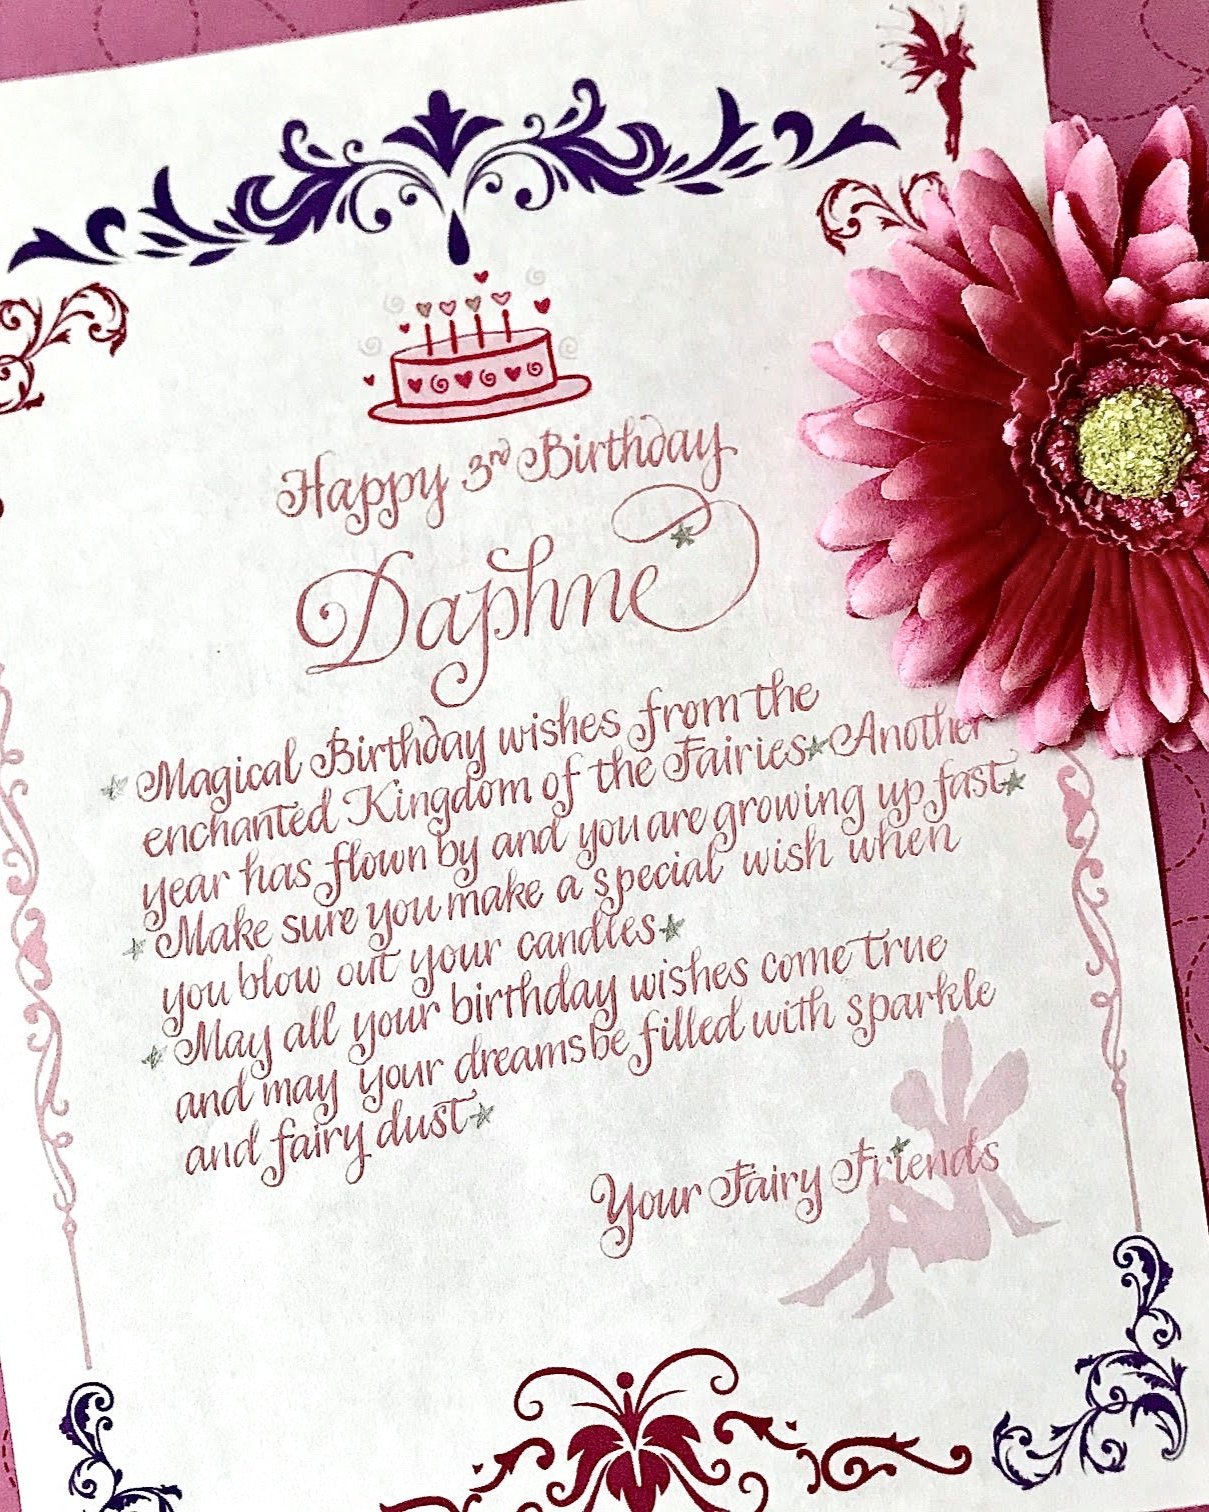 Happy 3rd Birthday
Daphne
Magical Birthday wishes from the
enchanted Kingdom of the Fairies Another
year has flown by and you are growing up fast
Make sure you make a special wish when
you blow out your candles
May all your birthday wishes come true
and may your dreams be filled with sparkle
and fairy dust
Your Fairy Friends